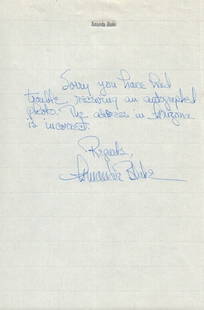 Amanda Blake
Sorry you have had
trouble receiving an autographed
photo. The address in Arizona
is incorrect.
Regards,
Amanda Blake